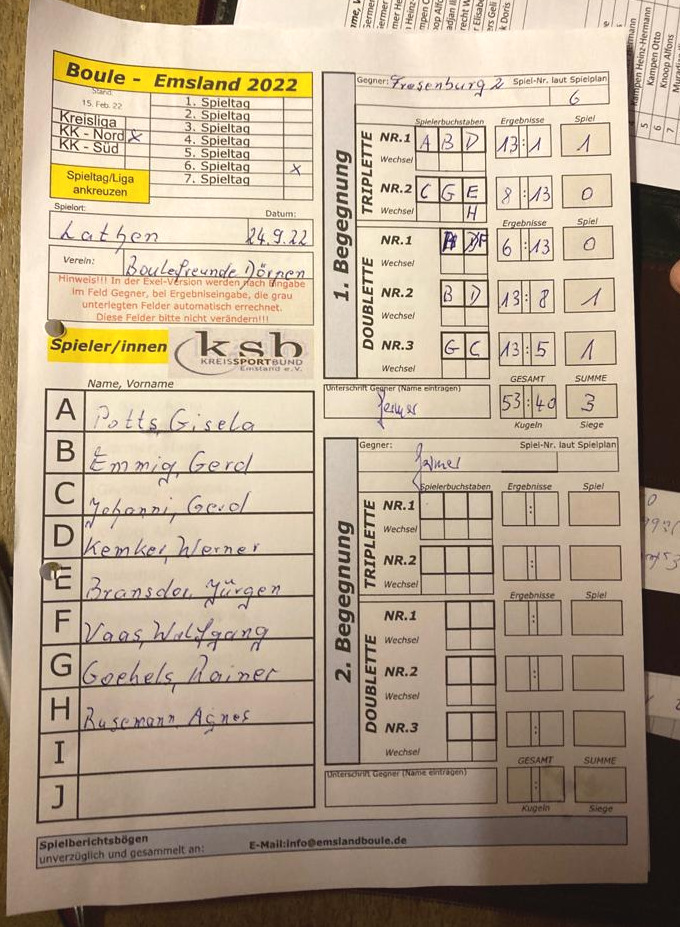 Boule - Emsland 2022
Stand
15. Feb. 22
Kreisliga
KK - Nord x
KK - Süd
1. Spieltag
2. Spieltag
3. Spieltag
4. Spieltag
5. Spieltag
6. Spieltag x
7. Spieltag
Spieltag/Liga
ankreuzen
Spielort: Datum:
Lathen 24.9.22
Verein: Boulefreunde Dörpen
Hinweis!!! In der Exel-Version werden nach Eingabe
im Feld Gegner, bei Ergebniseingabe, die grau
unterlegten Felder automatisch errechnet.
Diese Felder bitte nicht verändern!!!
Spieler/innen
ksb
KREISSPORTBUND
Emsland e.V.
Name, Vorname
A Potts, Gisela
B Emmig, Gerd
C Johanni, Gerd
D Kemker, Werner
E Bransdor, Jürgen
F Vaas, Wolfgang
G Goehels, Rainer
H Rusemann Agnes
I
J
1. Begegnung
Gegner: Fresenburg 2 Spiel-Nr. laut Spielplan
6
Spielerbuchstaben Ergebnisse Spiel
TRIPLETTE
NR.1 A B D 13:1 1
Wechsel
NR.2 C G E 8:13 0
Wechsel H
Ergebnisse Spiel
DOUBLETTE
NR.1 F 6:13 0
Wechsel
NR.2 B D 13:8 1
Wechsel
NR.3 G C 13:5 1
Wechsel
GESAMT SUMME
Unterschrift Gegner (Name eintragen)
53:40 3
Kugeln Siege
2. Begegnung
Gegner: Spiel-Nr. laut Spielplan
Spielerbuchstaben Ergebnisse Spiel
TRIPLETTE
NR.1 :
Wechsel
NR.2 :
Wechsel
Ergebnisse Spiel
DOUBLETTE
NR.1 :
Wechsel
NR.2 :
Wechsel
NR.3 :
Wechsel
GESAMT SUMME
Unterschrift Gegner (Name eintragen)
:
Kugeln Siege
Spielberichtsbögen
unverzüglich und gesammelt an: E-Mail:info@emslandboule.de
Kampen Heinz-Hermann
5 Kampen Otto
6 Knoop Alfons
7